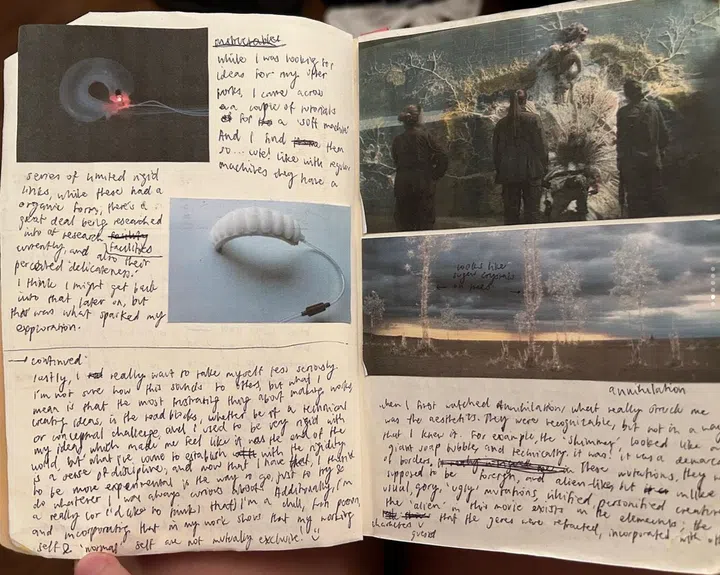 instructables
while I was looking for
ideas for my other
works, I came across
a couple of tutorials
for a 'soft machine'
And I find them
so... cute! like with regular
machines they have a
series of limited rigid
links, while these had a
organic form, there's a
great deal being researched
into of research facilities
currently, and also their
perceived delicateness."
I think I might get back
into that later on, but
that was what sparked my
exploration.
→ continued:
lastly, I really want to take myself less seriously.
I'm not sure how this sounds to others, but what I
mean is that the most frustrating thing about making works,
creating ideas, is the road blocks, whether be it a technical
or conceptual challenge, and I used to be very rigid with
my ideas which made me feel like it was the end of the
world, but what I've come to establish with the rigidity
is a sense of discipline, and now that I have that, I think
to be more experimental is the way to go, just to try &
do whatever I was always curious about. Additionally, I'm
a really (or I'd like to think) that I'm a chill, fun person,
and incorporating that in my work shows that my working
self & 'normal' self are not mutually exclusive! :)
looks like
sugar crystals
on trees
annihilation
when I first watched Annihilation, what really struck me
was the aesthetics. They were recognizable, but not in a way
that I knew it. For example, the 'shimmer' looked like a
giant soap bubble, and technically it was! it was a demarc
of borders, These mutations, they w
supposed to be foreign, and alien-like, but unlike
usual, gory, 'ugly' mutations, vilified personified creatures
the 'alien' in this movie exists in the elements: the
characters that the genes were refracted, incorporated with oth
guessed